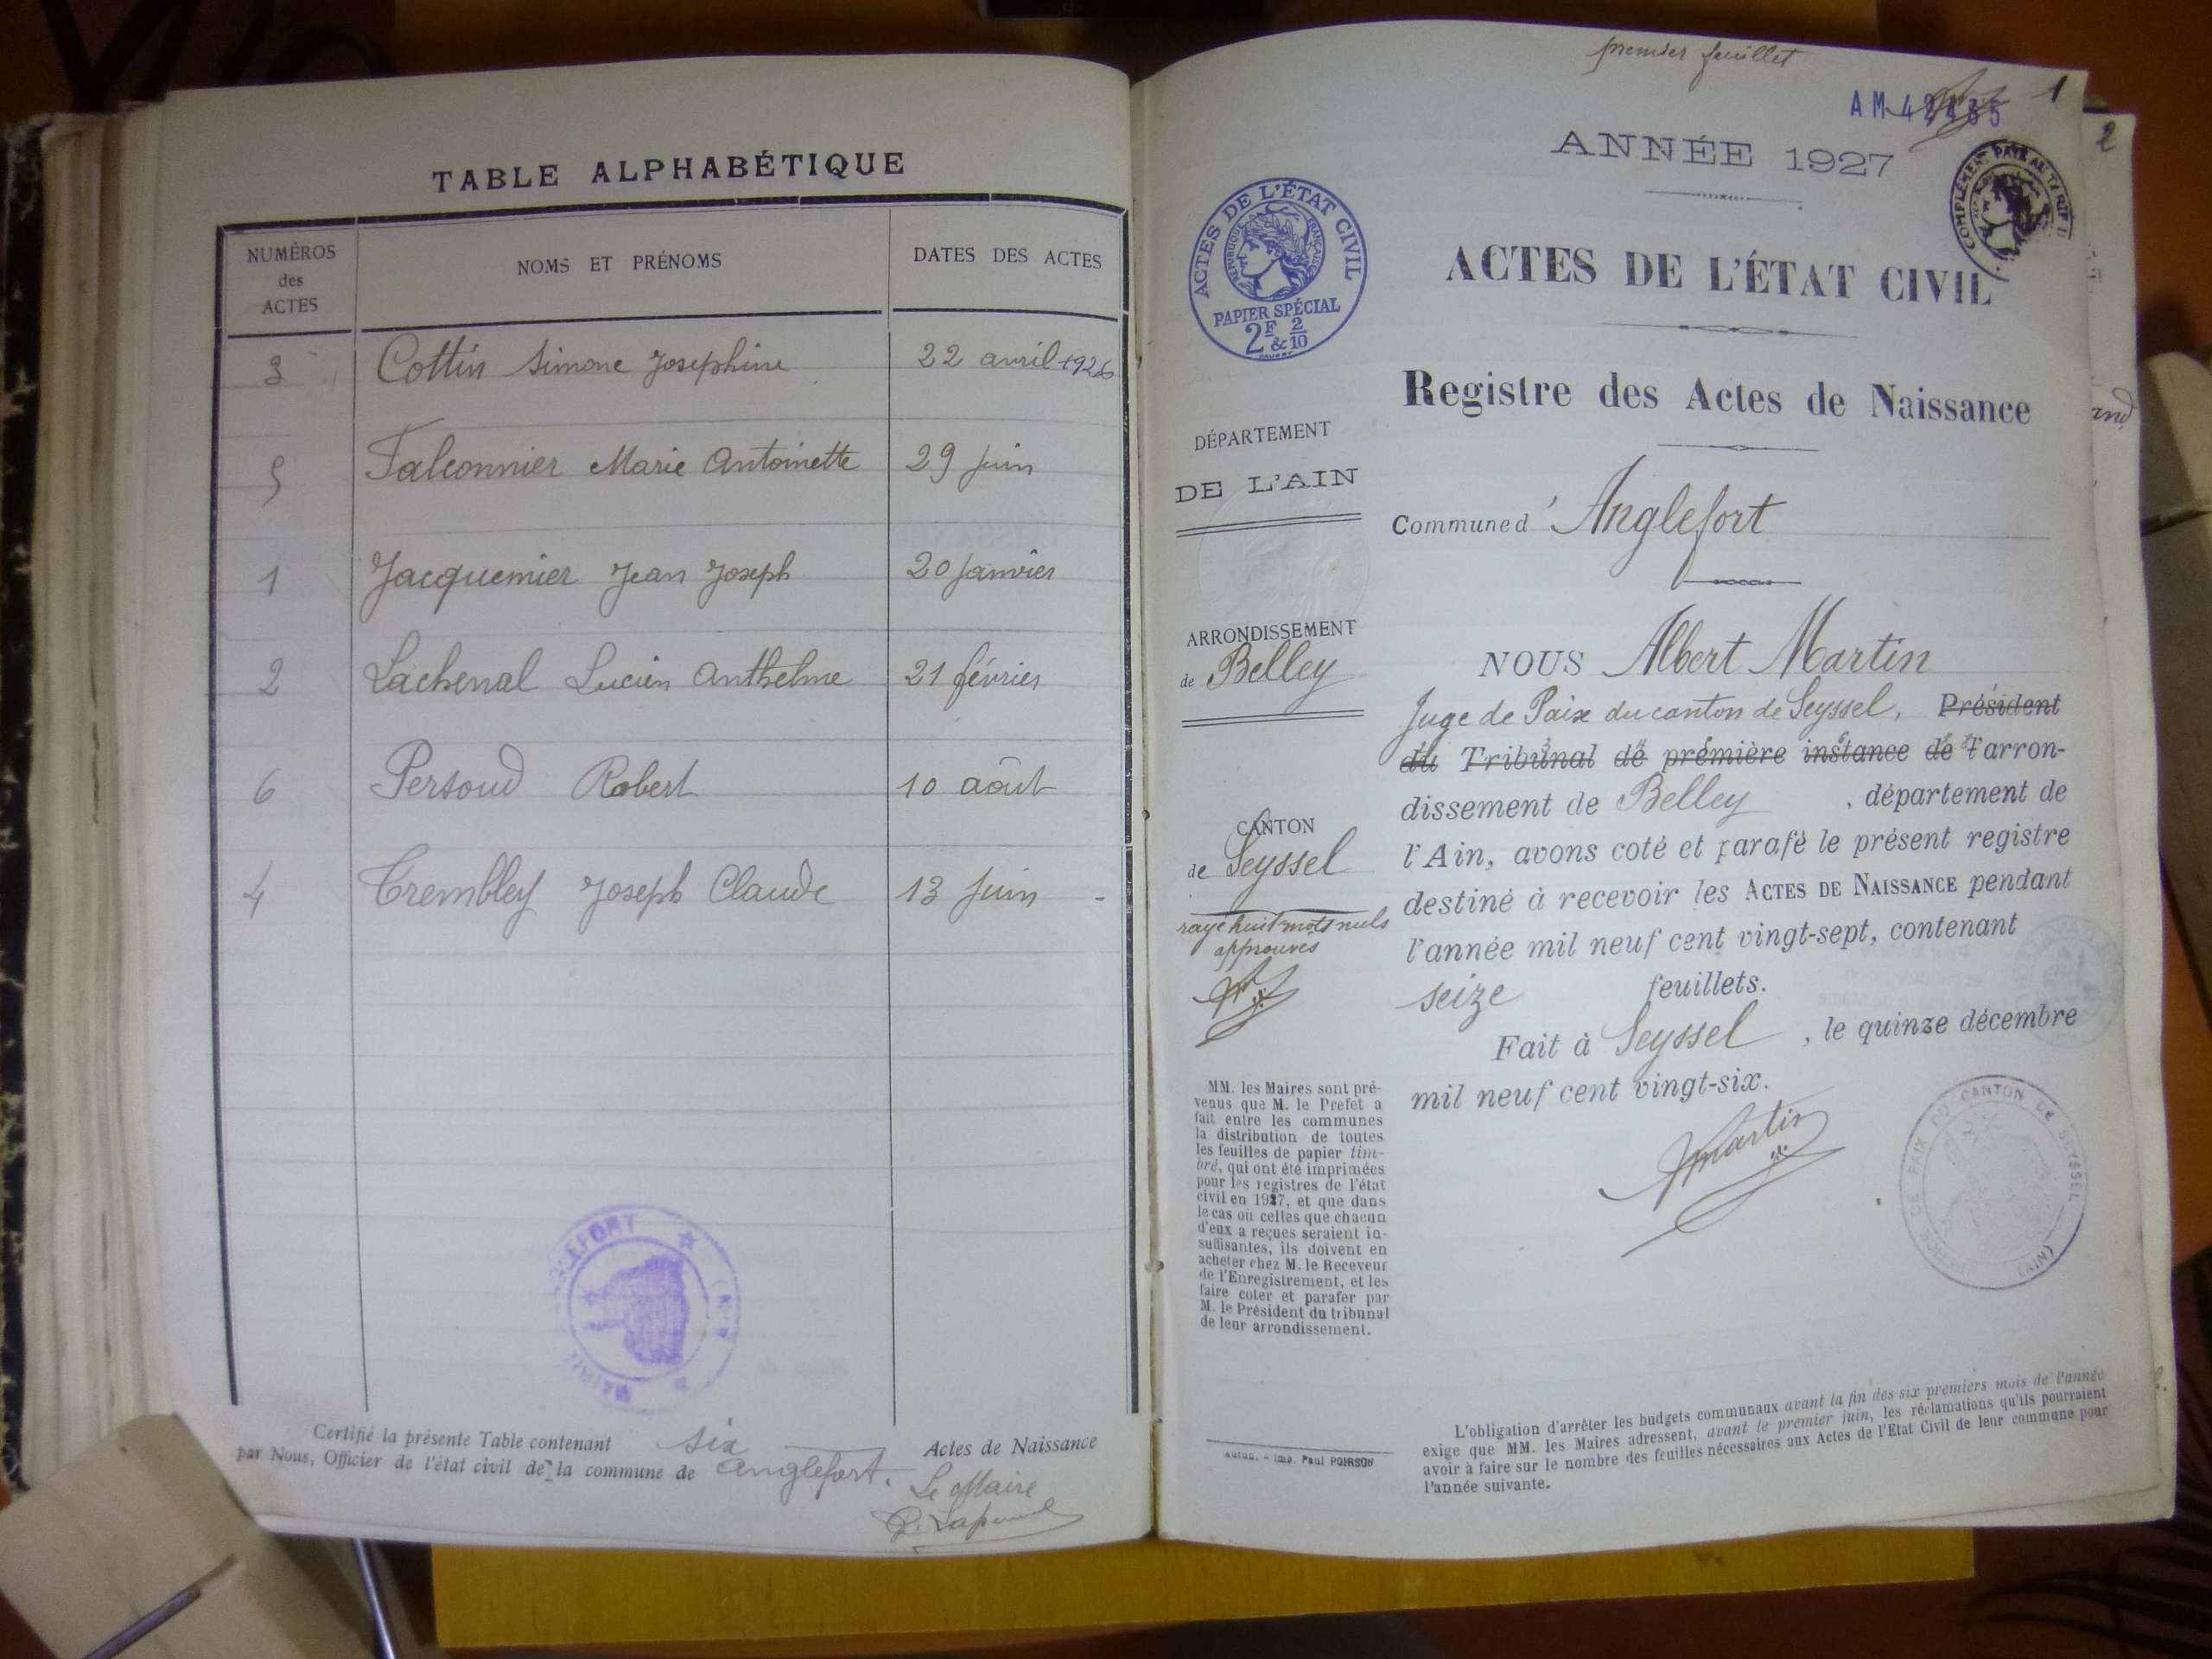 TABLE ALPHABÉTIQUE
NUMÉROS des ACTES
NOMS ET PRÉNOMS
DATES DES ACTES
3 Cottin Simone Josephine 22 avril 1926
5 Falconnier Marie Antoinette 29 juin
1 Jacquemier Jean Joseph 20 janvier
2 Lachenal Lucien Anthelme 21 février
6 Persoud Robert 10 août
4 Trembley Joseph Claude 13 juin -
Certifié la présente Table contenant six Actes de Naissance
par Nous, Officier de l'état civil de la commune de Anglefort.
Le Maire
premier feuillet
AM 42435
1
2
ANNÉE 1927
COMPLÉMENT PAYÉ AU TARIF
ACTES DE L'ÉTAT CIVIL
RÉPUBLIQUE FRANÇAISE
PAPIER SPÉCIAL
2F & 2/10
ACTES DE L'ÉTAT CIVIL
Registre des Actes de Naissance
DÉPARTEMENT
DE L'AIN
Commune d'Anglefort
ARRONDISSEMENT
de Belley
CANTON
de Seyssel
rayé huit mots nuls
approuvés
NOUS Albert Martin
Juge de Paix du canton de Seyssel, Président
du Tribunal de première instance de l'arron-
dissement de Belley, département de
l'Ain, avons coté et parafé le présent registre
destiné à recevoir les ACTES DE NAISSANCE pendant
l'année mil neuf cent vingt-sept, contenant
seize feuillets.
Fait à Seyssel, le quinze décembre
mil neuf cent vingt-six.
Martin
MM. les Maires sont pré-
venus que M. le Prefet a
fait entre les communes
la distribution de toutes
les feuilles de papier tim-
bré, qui ont été imprimées
pour les registres de l'état
civil en 1927, et que dans
le cas où celles que chacun
d'eux a reçues seraient in-
suffisantes, ils doivent en
acheter chez M. le Receveur
de l'Enregistrement, et les
faire coter et parafer par
M. le Président du tribunal
de leur arrondissement.
Imp. Paul POIRSON
L'obligation d'arrêter les budgets communaux avant la fin des six premiers mois de l'année
exige que MM. les Maires adressent, avant le premier juin, les réclamations qu'ils pourraient
avoir à faire sur le nombre des feuilles nécessaires aux Actes de l'Etat Civil de leur commune pour
l'année suivante.
DE PAIX DU CANTON DE SEYSSEL (AIN)